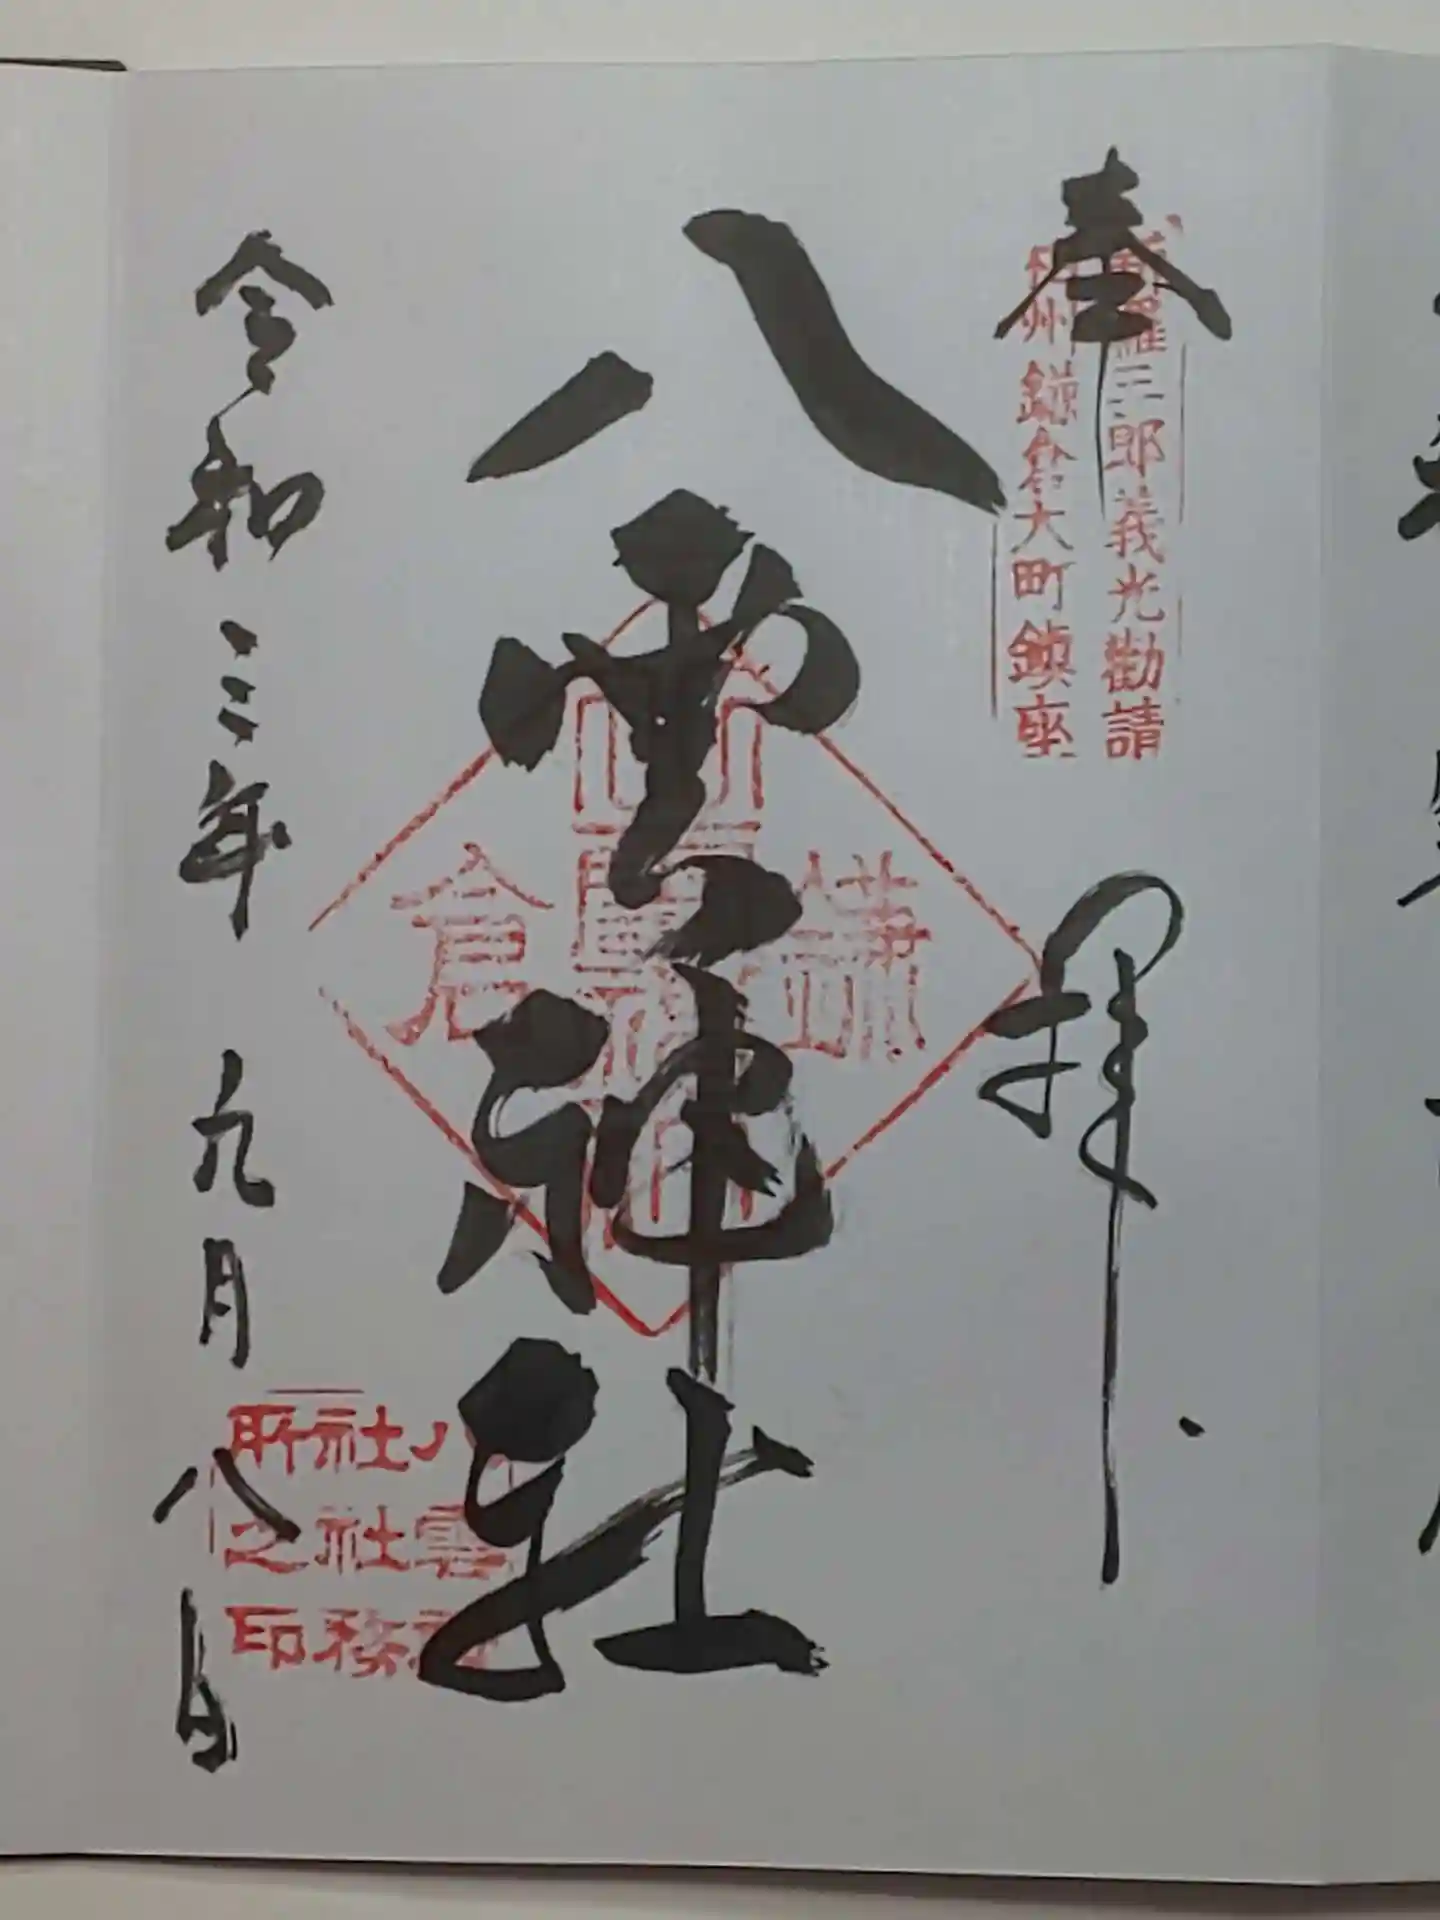 奉拝
新羅三郎義光勧請
相州鎌倉大町鎮座
八雲神社
鎌倉
八雲神社社務所之印
令和三年九月八日